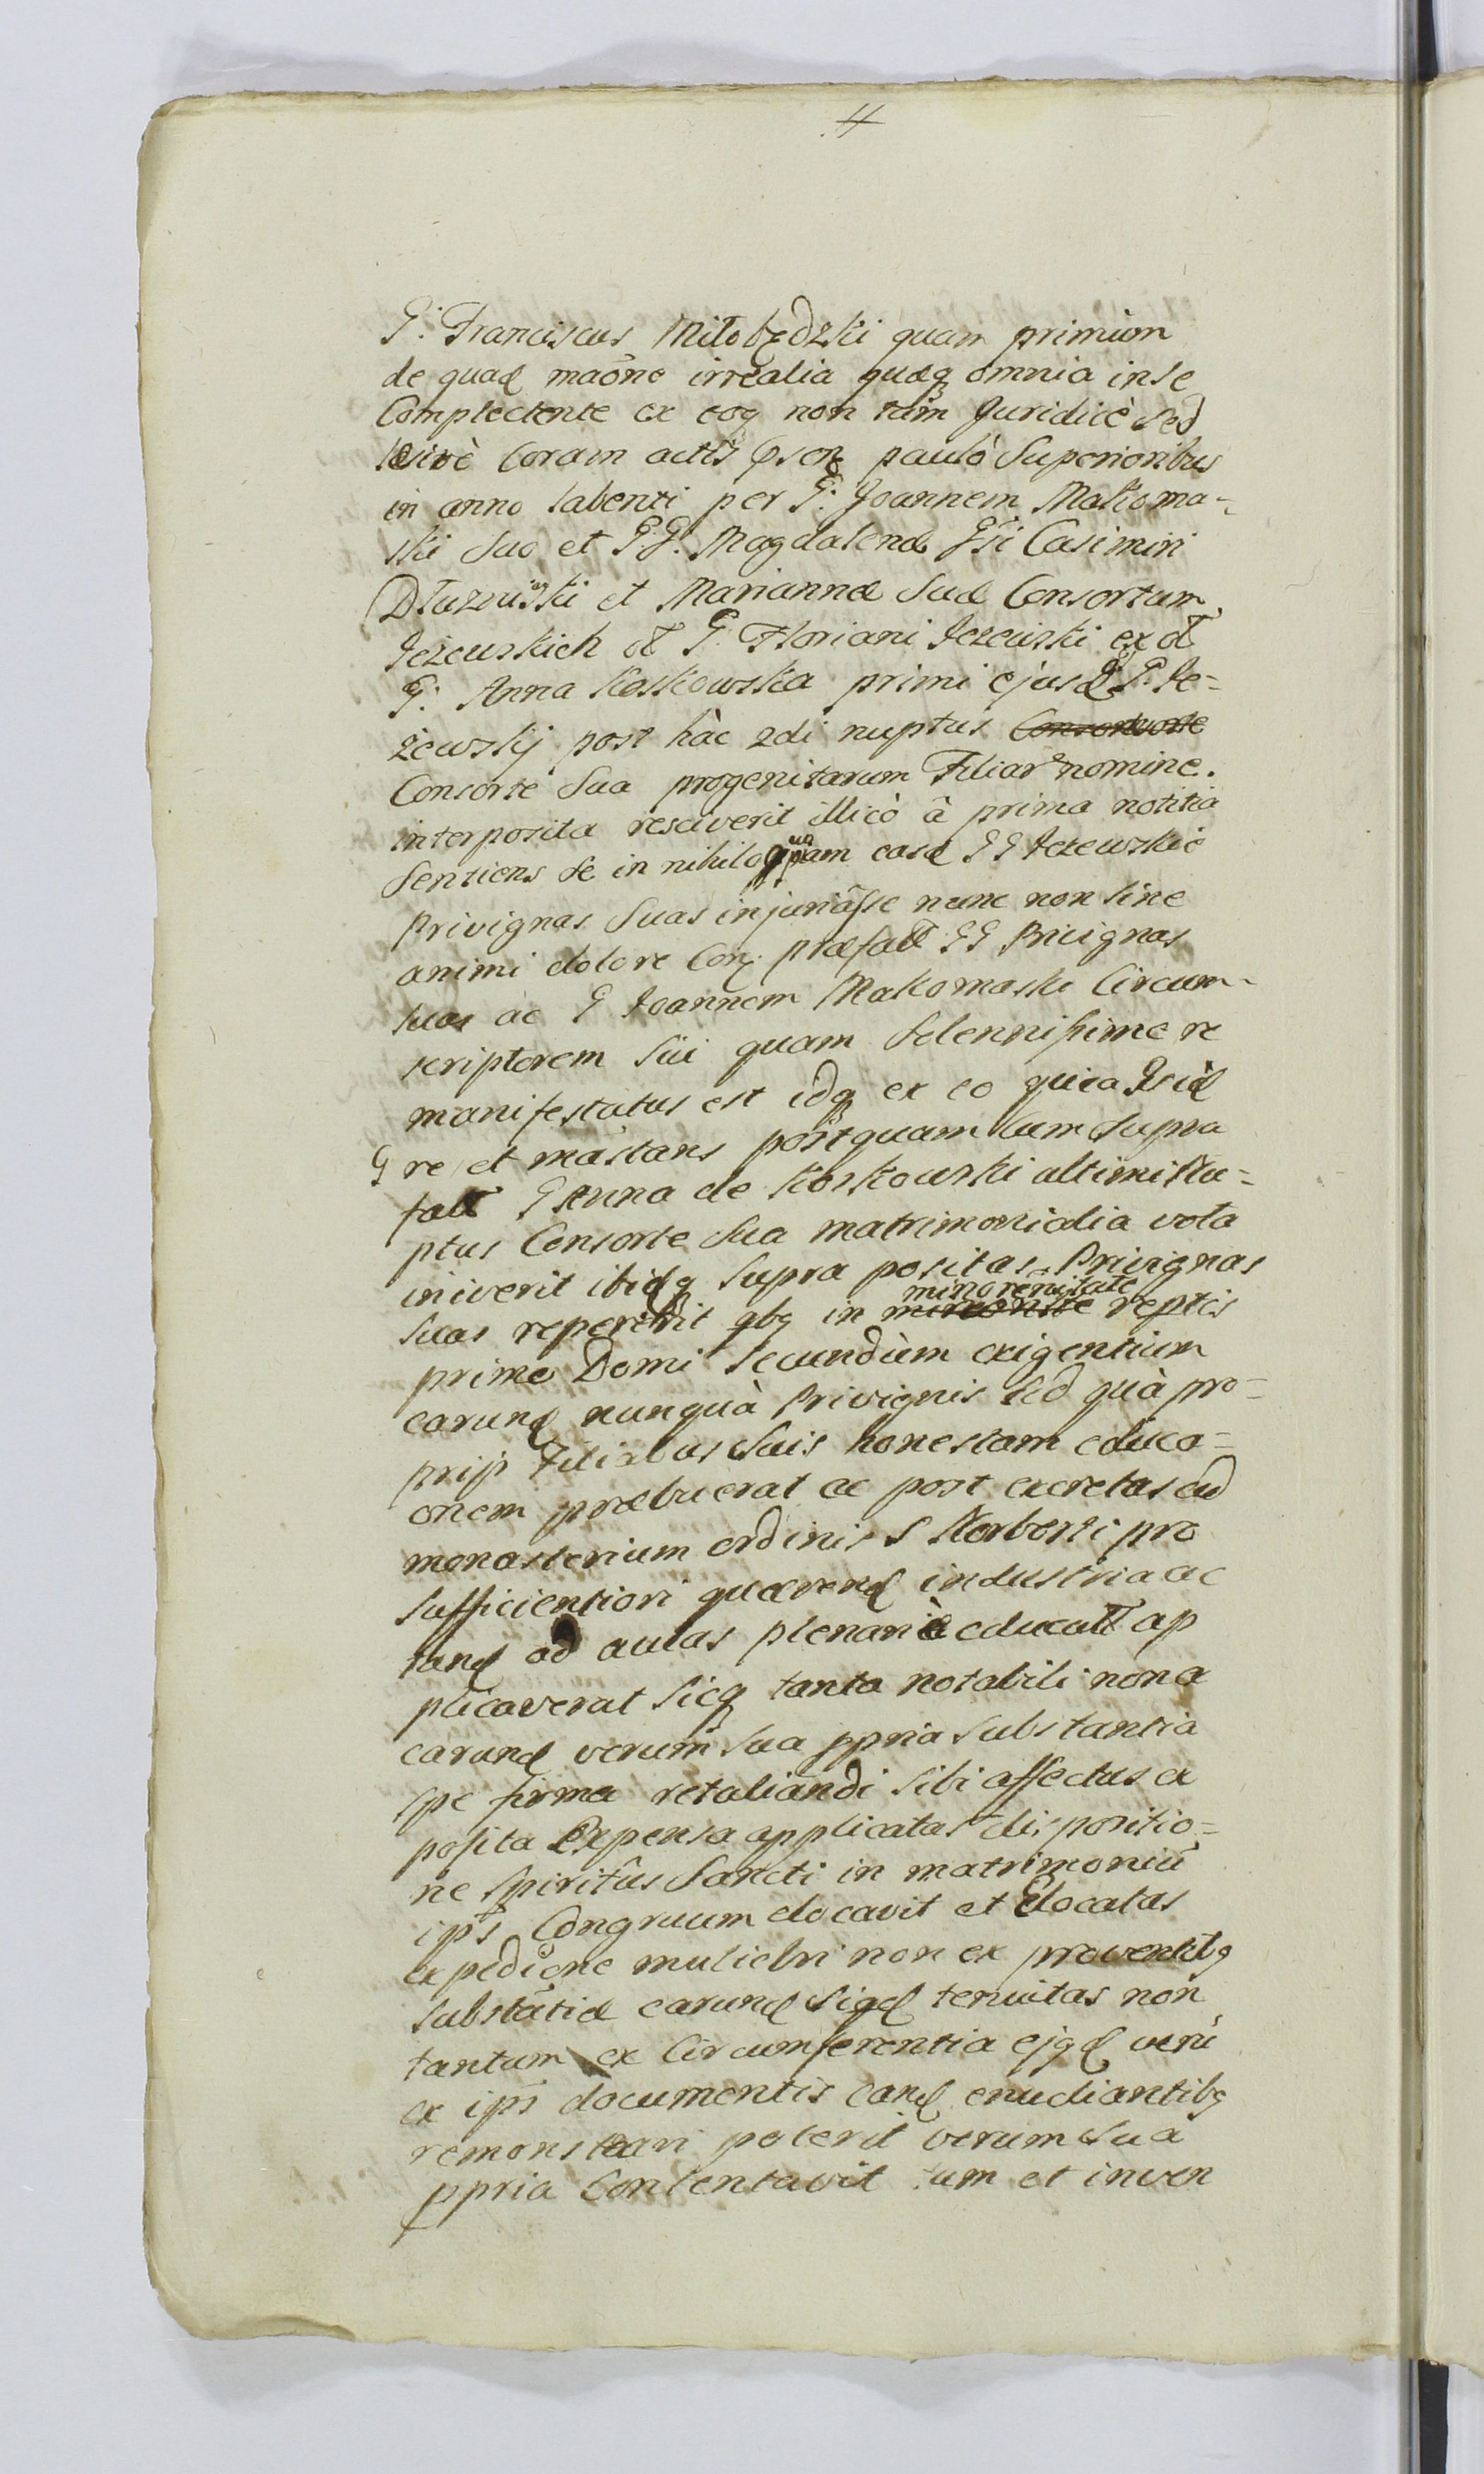 G. Franciscus Miłobędzki quam primum
de quad maone irrealia quæq omnia in se
Complectente ex eoq non tam Juridicè sed
coram actis paulò Superioribus
in anno labenti per G. Joannem Makoma-
ski suo et G.G. Magdalenæ Gsi Casimiri
Dłuzniewski et Mariannæ Suæ Consortum
Jezewskich et G. Floriani Jezewski ex
G. Anna Koskowska primi ejusd G. Je-
żewskij post hàc 2di nuptus
Consorte Sua progenitarum Filiar nomine.
interposita resciverit illicò à prima notitia
Sentiens se in nihilo easd GG Jezewskie
Privignas Suas injuriasse nunc non sine
animi dolore Con præfatt GG Privignas
suas ac G Joannem Makomaski Circum-
scriptorem sui quam Solennissime re
manifestatus est idq ex eo quia Gsid
G re et mastans postquam cum Supra
fatt G Anna de Koskowski ultimi Nu-
ptus Consorte Sua matrimonialia vota
iniverit ibidq Supra positas Privignas
minorenitate
Suas reperibit qbq in reptis
prime Domi Secundùm exigentium
earund nunquà Privignis sed quà pro-
prijs Filiabus Suis honestam educa-
onem præbuerat ac post excretas ad
monasterium ordinis S Norberti pro
Sufficientiori quærend industria ac
tand ad aulas plenariè educatt ap
plicaverat Sicq tanta notabili non a
earund verum Sua ppria Substantia
Spe firma retaliandi Sibi affectus ex
posita Expensa applicatas dispositio-
ne Spiritûs Sancti in matrimoniū
ips Congruum elocavit et Elocatas
expedione muliebri non ex proventibq
Substātiæ earund siqd tenuitas non
tantum ex Circumferentia ejqd verū
ex ips documentis eand enudiantibq
remonstrari poterit verum Sua
ppria Contentavit tum et inven